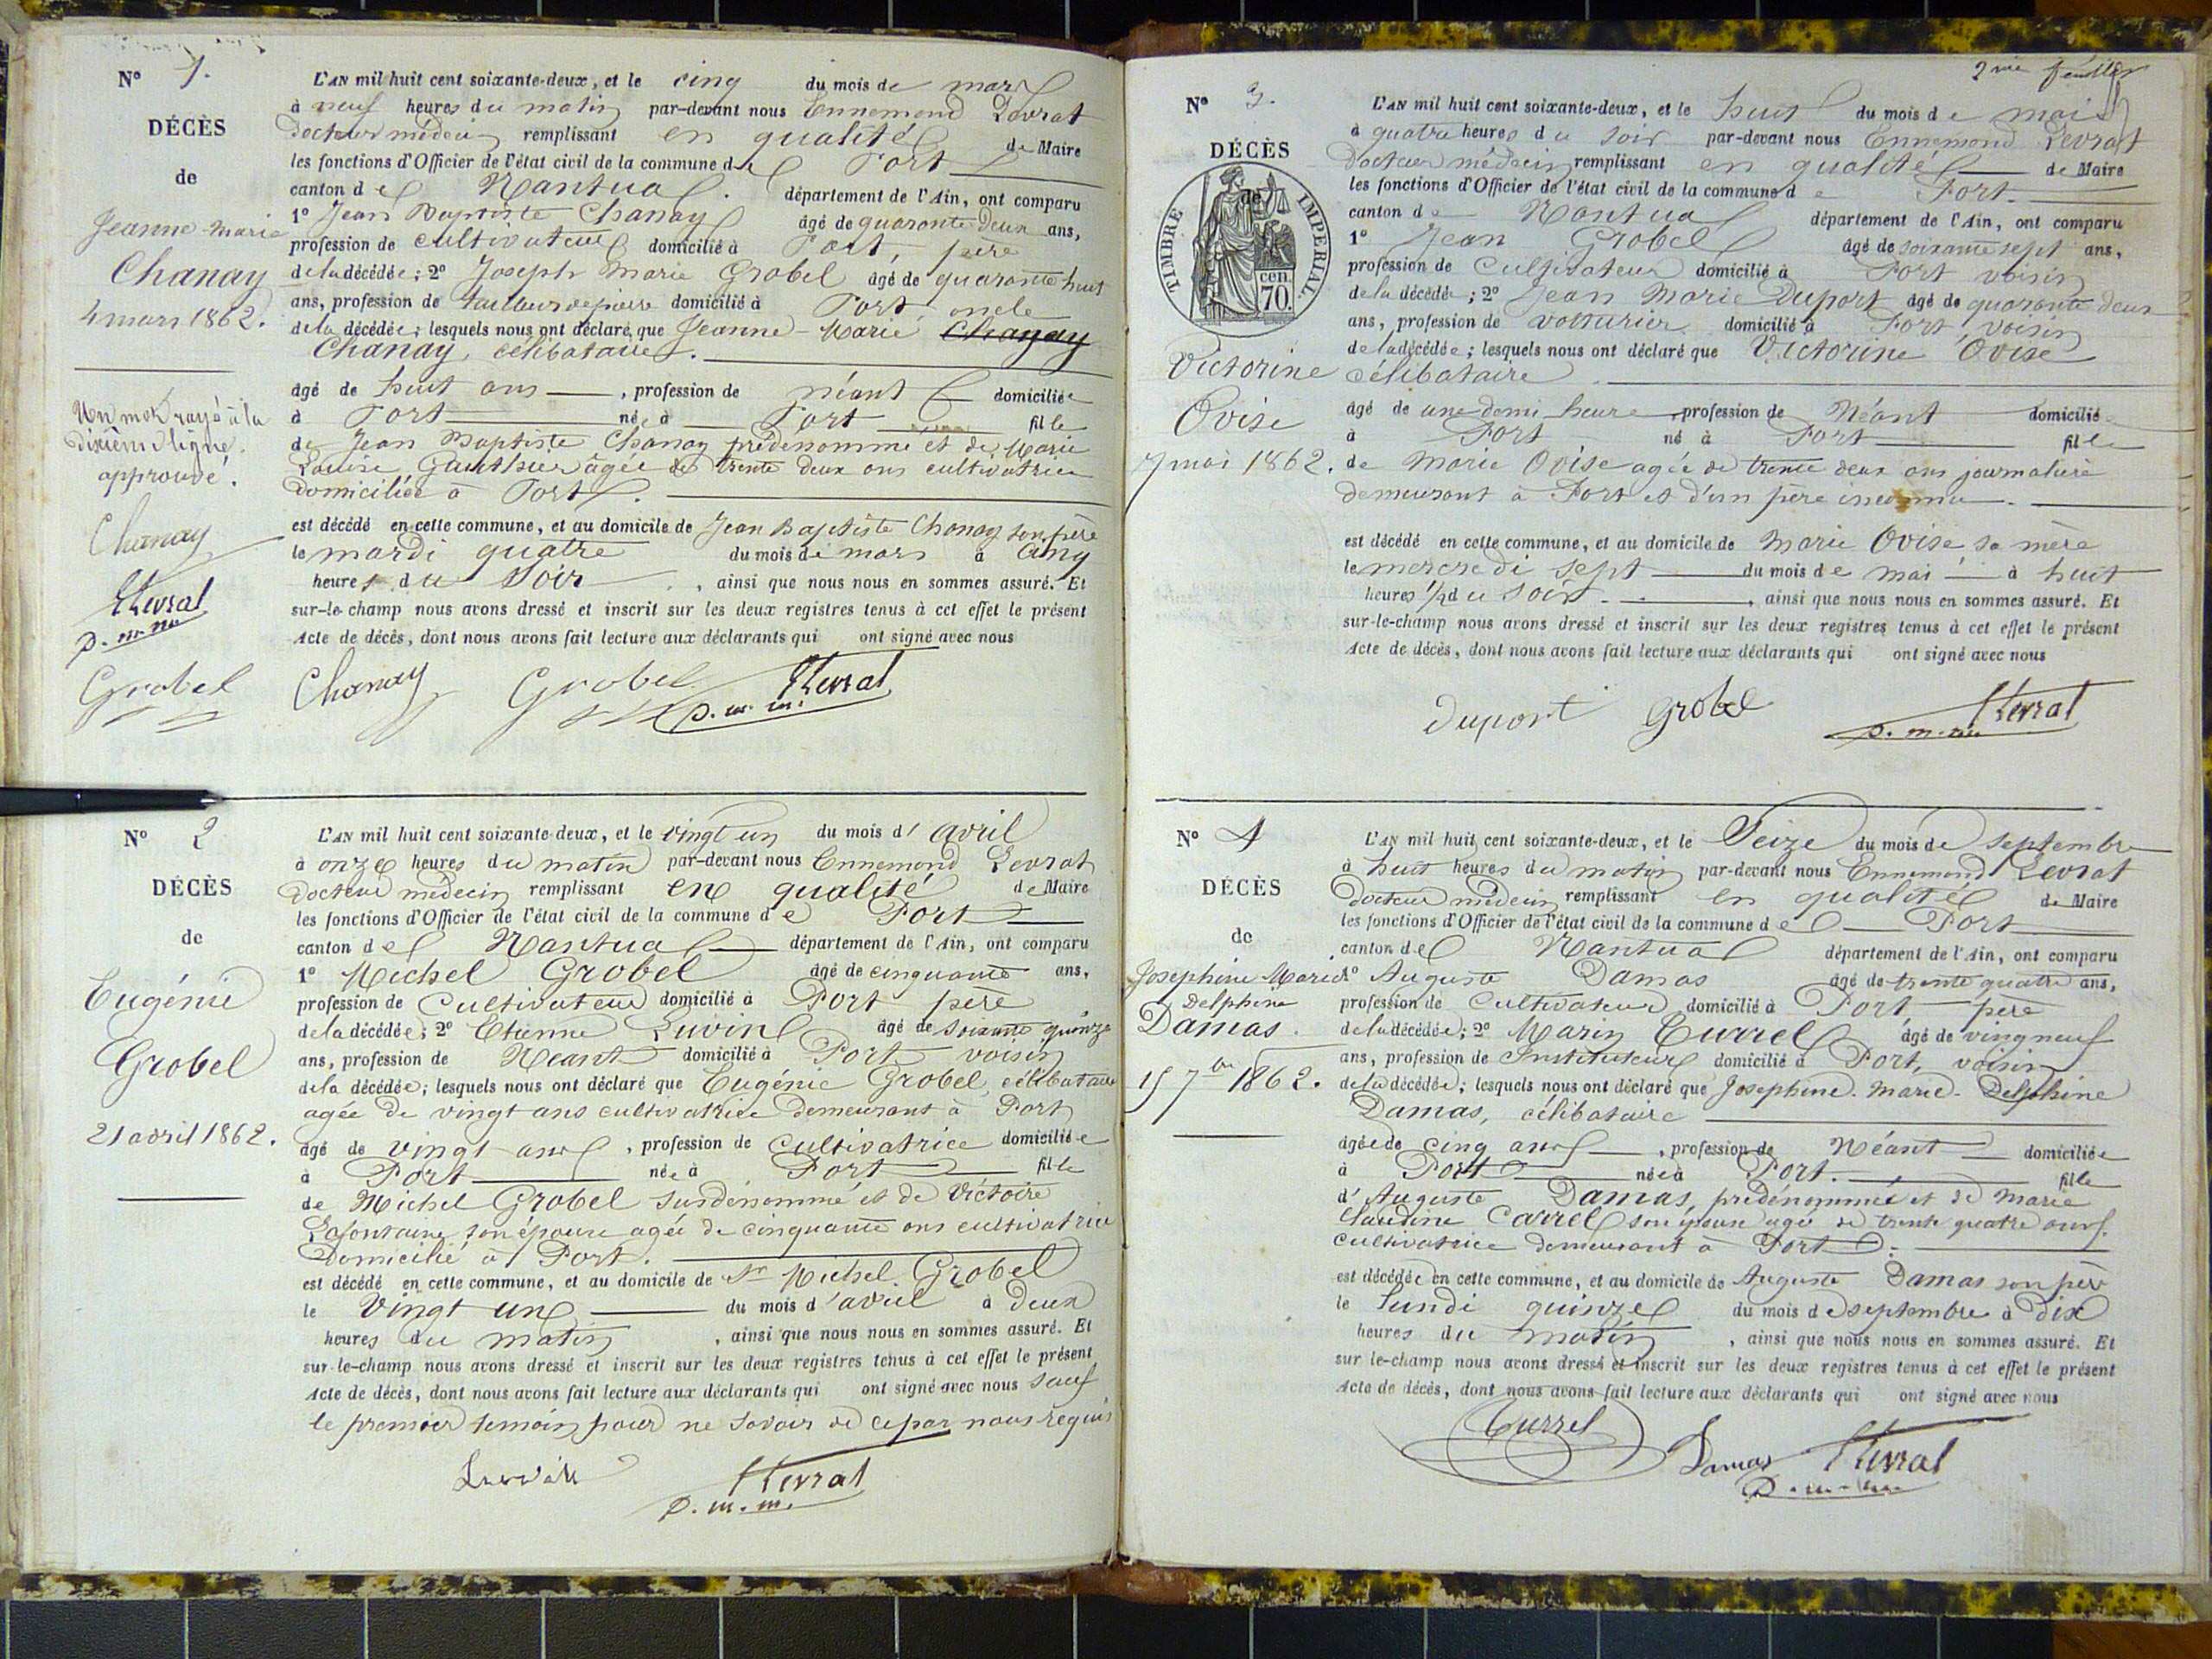 N° 1.
DÉCÈS
de
Jeanne-Marie
Chanay
4 mars 1862.
Un mot rayé à la
dixième ligne
approuvé.
Chanay
Levrat
Grobel
L'AN mil huit cent soixante-deux, et le cinq du mois de mars
à neuf heures du matin par-devant nous Ennemond Levrat
docteur médecin remplissant en qualité de Maire
les fonctions d'Officier de l'état civil de la commune de Port
canton de Nantua département de l'Ain, ont comparu
1° Jean Baptiste Chanay âgé de quarante deux ans,
profession de cultivateur domicilié à Port, père
de la décédée; 2° Joseph Marie Grobel âgé de quarante huit
ans, profession de tailleur de pierre domicilié à Port, oncle
de la décédée; lesquels nous ont déclaré que Jeanne-Marie Chanay
Chanay, célibataire.
âgé de huit ans, profession de néant domiciliée
à Port née à Port fille
de Jean Baptiste Chanay prédénommé et de Marie
Louise Gauthier âgée de trente deux ans cultivatrice
domiciliée à Port.
est décédé en cette commune, et au domicile de Jean Baptiste Chanay son père
le mardi quatre du mois de mars à cinq
heures du soir, ainsi que nous nous en sommes assuré. Et
sur-le-champ nous avons dressé et inscrit sur les deux registres tenus à cet effet le présent
Acte de décès, dont nous avons fait lecture aux déclarants qui ont signé avec nous
Chanay Grobel Levrat
N° 2
DÉCÈS
de
Eugénie
Grobel
21 avril 1862.
L'AN mil huit cent soixante-deux, et le vingt un du mois d'avril
à onze heures du matin par-devant nous Ennemond Levrat
docteur médecin remplissant en qualité de Maire
les fonctions d'Officier de l'état civil de la commune de Port
canton de Nantua département de l'Ain, ont comparu
1° Michel Grobel âgé de cinquante ans,
profession de Cultivateur domicilié à Port père
de la décédée; 2° Etienne Luvin âgé de soixante quinze
ans, profession de Néant domicilié à Port voisin
de la décédée; lesquels nous ont déclaré que Eugénie Grobel, célibataire
agée de vingt ans cultivatrice demeurant à Port
âgé de vingt ans, profession de cultivatrice domiciliée
à Port née à Port fille
de Michel Grobel susdénommé et de Victoire
Lafontaine son épouse agée de cinquante ans cultivatrice
Domicilié à Port.
est décédé en cette commune, et au domicile de Sr Michel Grobel
le vingt un du mois d'avril à deux
heures du matin, ainsi que nous nous en sommes assuré. Et
sur-le-champ nous avons dressé et inscrit sur les deux registres tenus à cet effet le présent
Acte de décès, dont nous avons fait lecture aux déclarants qui ont signé avec nous sauf
le premier témoin pour ne savoir de ce par nous requis
Levrat
2me feuillet
N° 3.
DÉCÈS
de
TIMBRE IMPERIAL
70 cen.
Victorine
Ovise
7 mai 1862.
L'AN mil huit cent soixante-deux, et le huit du mois de mai
à quatre heures du soir par-devant nous Ennemond Levrat
docteur médecin remplissant en qualité de Maire
les fonctions d'Officier de l'état civil de la commune de Port
canton de Nantua département de l'Ain, ont comparu
1° Jean Grobel âgé de soixante sept ans,
profession de Cultivateur domicilié à Port voisin
de la décédée; 2° Jean Marie Duport âgé de quarante deux
ans, profession de voiturier domicilié à Port, voisin
de la décédée; lesquels nous ont déclaré que Victorine Ovise
célibataire
âgé de une demi heure profession de Néant domicilié
à Port né à Port fille
de Marie Ovise agée de trente deux ans journalière
demeurant à Port et d'un père inconnu.
est décédé en cette commune, et au domicile de Marie Ovise sa mère
le mercredi sept du mois de mai à huit
heures 1/2 du soir, ainsi que nous nous en sommes assuré. Et
sur-le-champ nous avons dressé et inscrit sur les deux registres tenus à cet effet le présent
Acte de décès, dont nous avons fait lecture aux déclarants qui ont signé avec nous
Duport Grobel Levrat
N° 4
DÉCÈS
de
Josephine Marie
Delphine
Damas.
15 7bre 1862.
L'AN mil huit cent soixante-deux, et le Seize du mois de septembre
à huit heures du matin par-devant nous Ennemond Levrat
docteur médecin remplissant en qualité de Maire
les fonctions d'Officier de l'état civil de la commune de Port
canton de Nantua département de l'Ain, ont comparu
1° Auguste Damas âgé de trente quatre ans,
profession de Cultivateur domicilié à Port, père
de la décédée; 2° Marin Currel âgé de vingneuf
ans, profession de Instituteur domicilié à Port, voisin
de la décédée; lesquels nous ont déclaré que Josephine-Marie-Delphine
Damas, célibataire
âgée de cinq ans, profession de Néant domiciliée
à Port née à Port. fille
d'Auguste Damas, prédénommé et de Marie
Claudine Carrel son épouse agée de trente quatre ans.
cultivatrice demeurant à Port.
est décédée en cette commune, et au domicile de Auguste Damas son père
le lundi quinze du mois de septembre à Dix
heures du matin, ainsi que nous nous en sommes assuré. Et
sur-le-champ nous avons dressé et inscrit sur les deux registres tenus à cet effet le présent
Acte de décès, dont nous avons fait lecture aux déclarants qui ont signé avec nous
Currel Damas Levrat